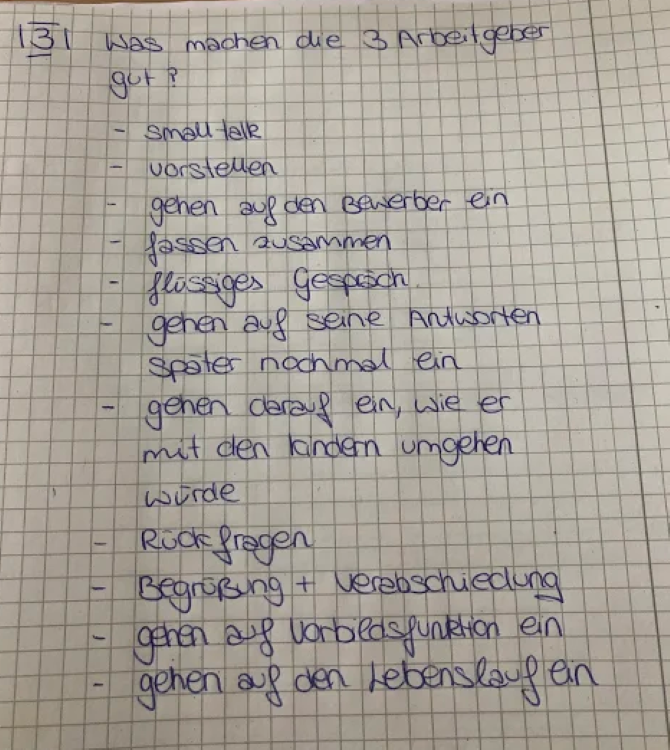 |3| Was machen die 3 Arbeitgeber
gut?
- small talk
- vorstellen
- gehen auf den Bewerber ein
- fassen zusammen
- flüssiges Gespräch
- gehen auf seine Antworten
später nochmal ein
- gehen darauf ein, wie er
mit den Kindern umgehen
würde
- Rückfragen
- Begrüßung + Verabschiedung
- gehen auf Vorbildsfunktion ein
- gehen auf den Lebenslauf ein